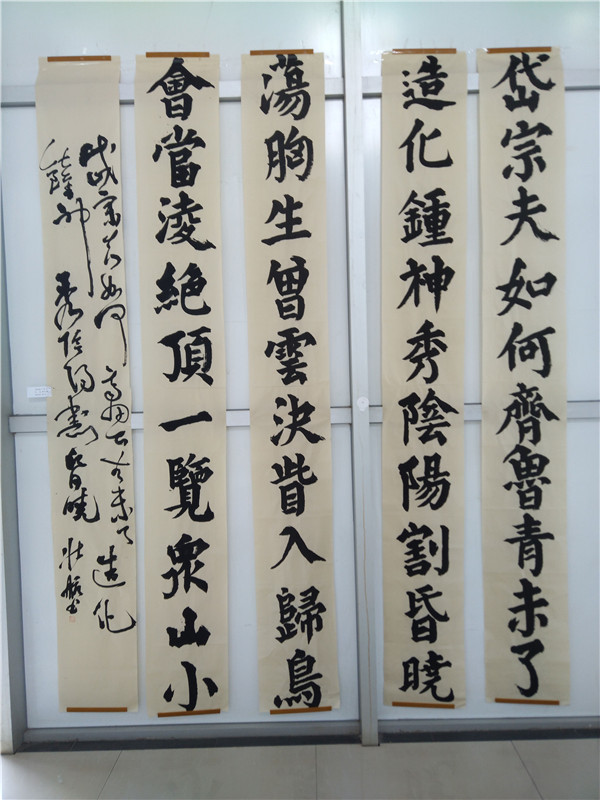 岱宗夫如何齊魯青未了
造化鍾神秀陰陽割昏曉
蕩胸生曾雲決眥入歸鳥
會當淩絕頂一覽衆山小
岱宗夫如何齊魯青未了造化
鍾神秀陰陽割昏曉